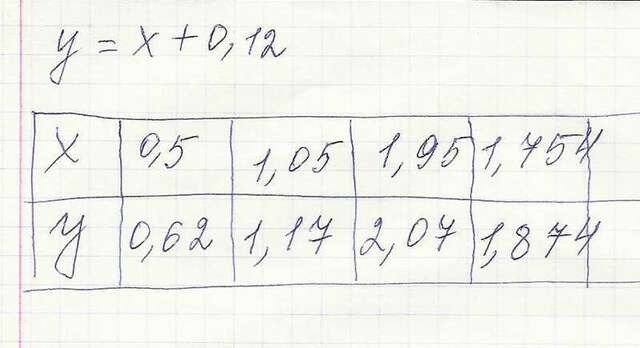 y = x + 0,12
x 0,5 1,05 1,95 1,754
y 0,62 1,17 2,07 1,874